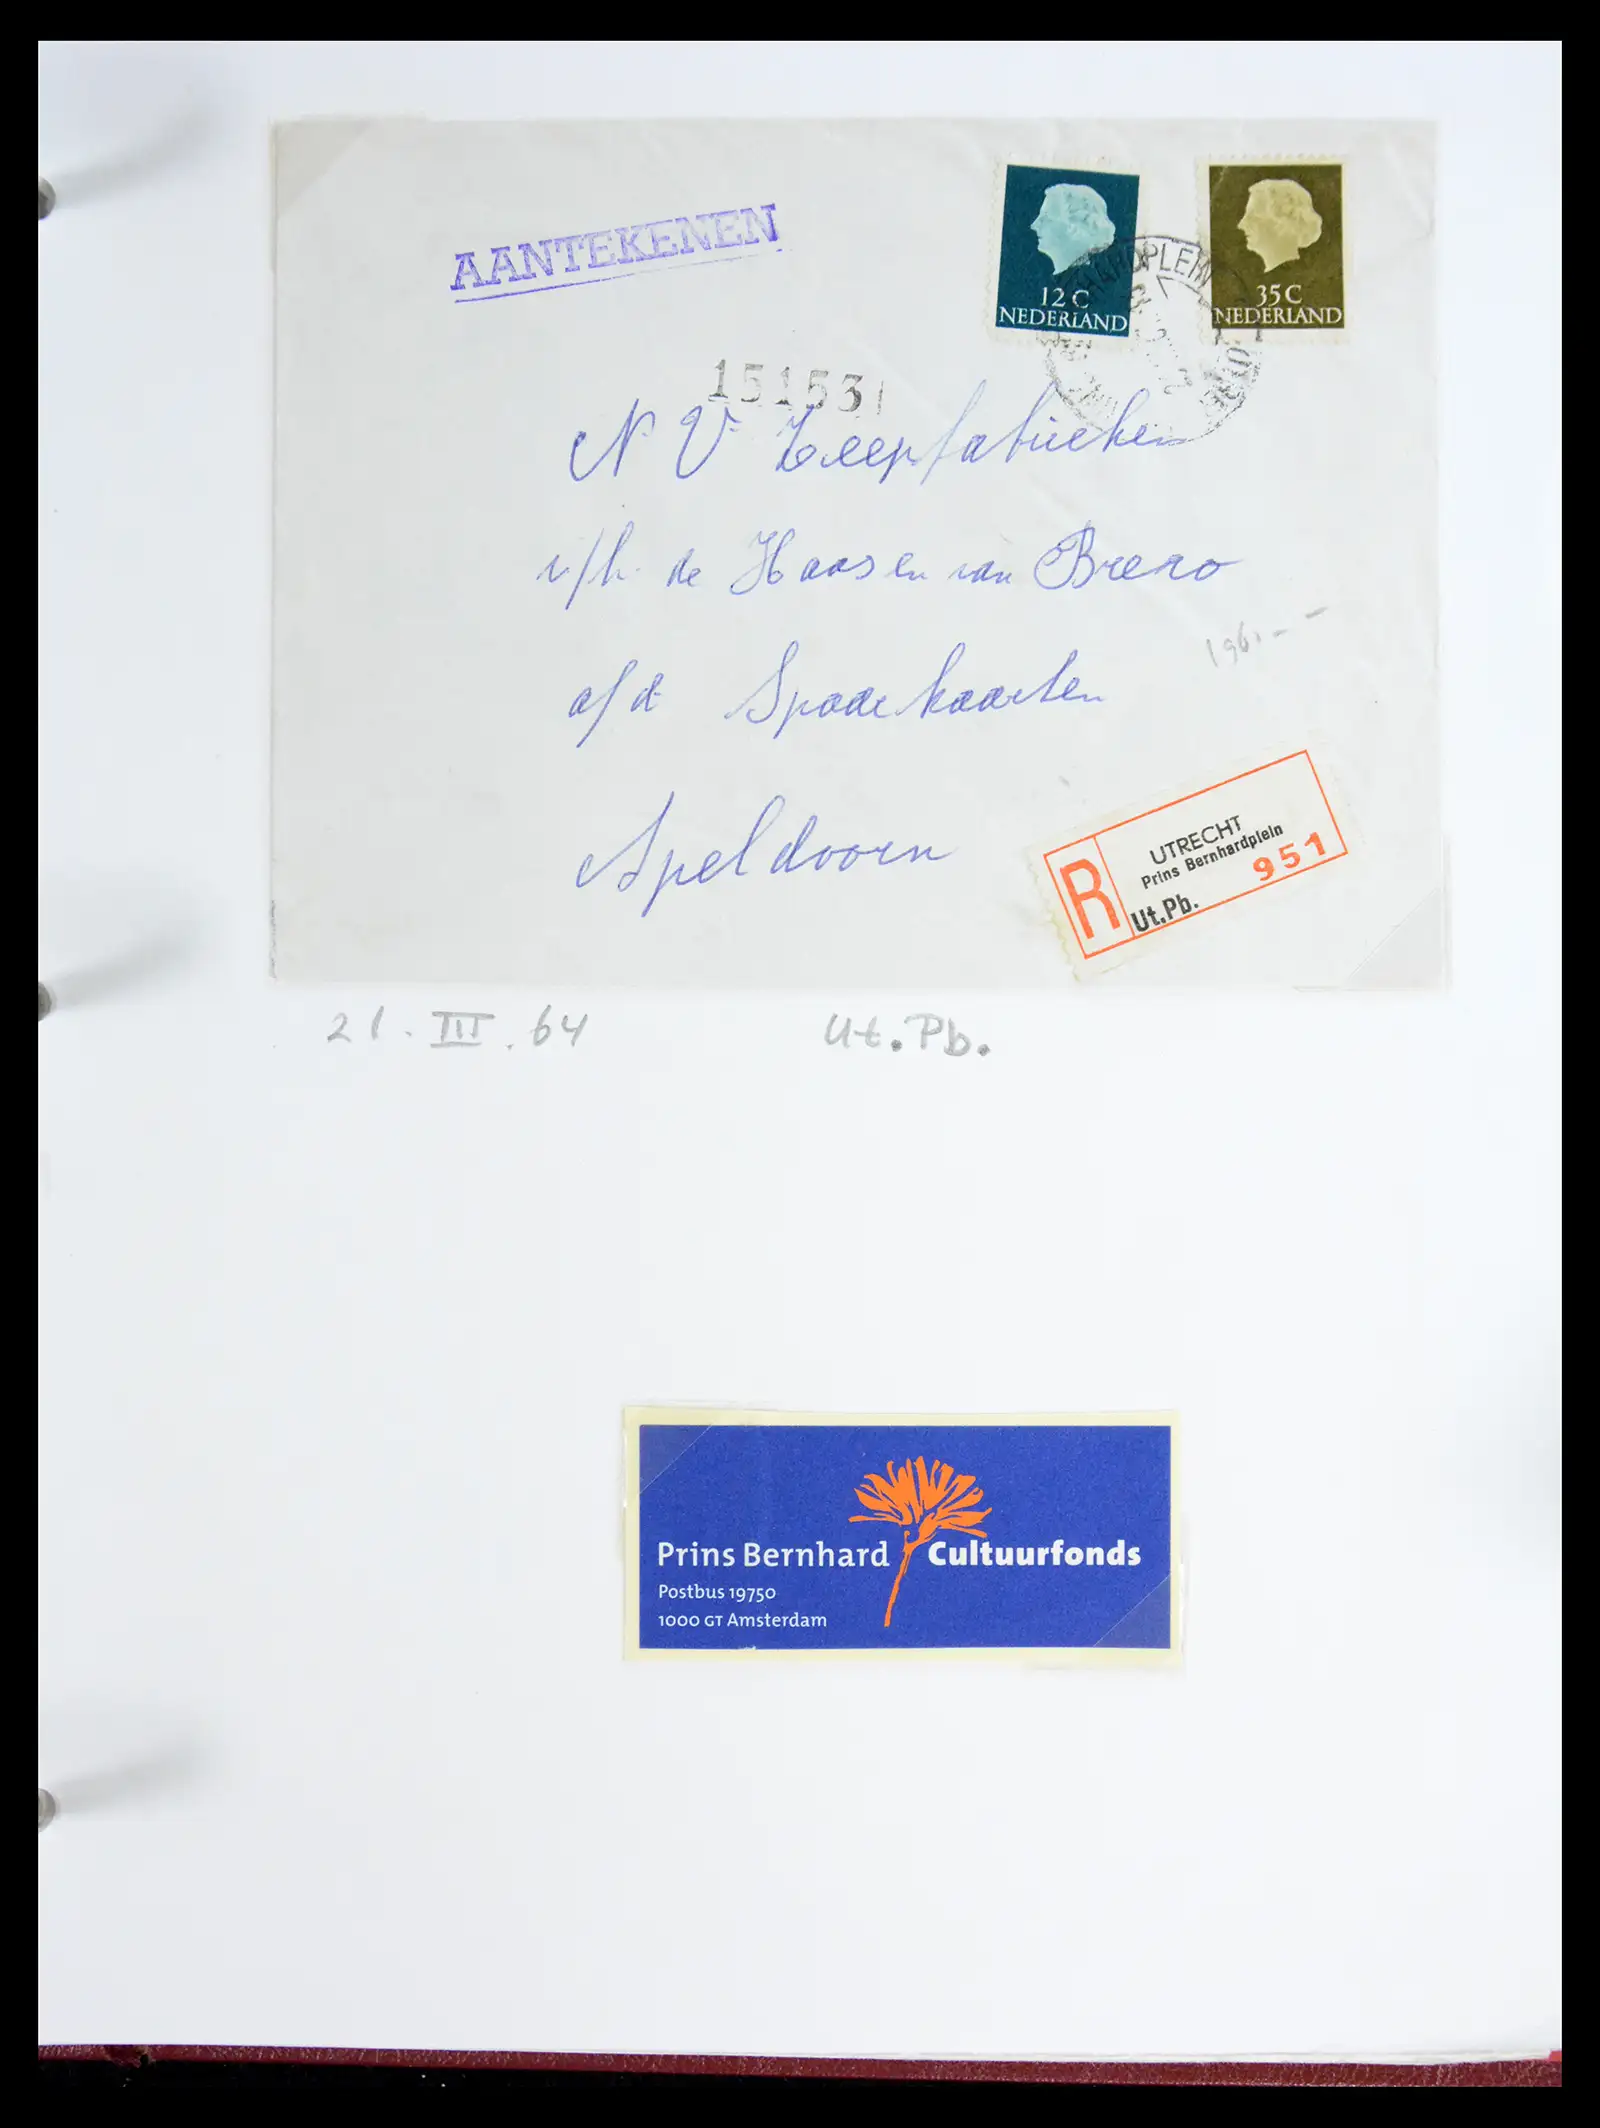 AANTEKENEN
12 C
NEDERLAND
35 C
NEDERLAND
151531
N V. Zeepfabrieken
v/h. de Haas en van Brero
a/d Spaarkaarten
Apeldoorn
R
UTRECHT
Prins Bernhardplein
951
Ut.Pb.
21. III. 64
Ut. Pb.
Prins Bernhard Cultuurfonds
Postbus 19750
1000 GT Amsterdam